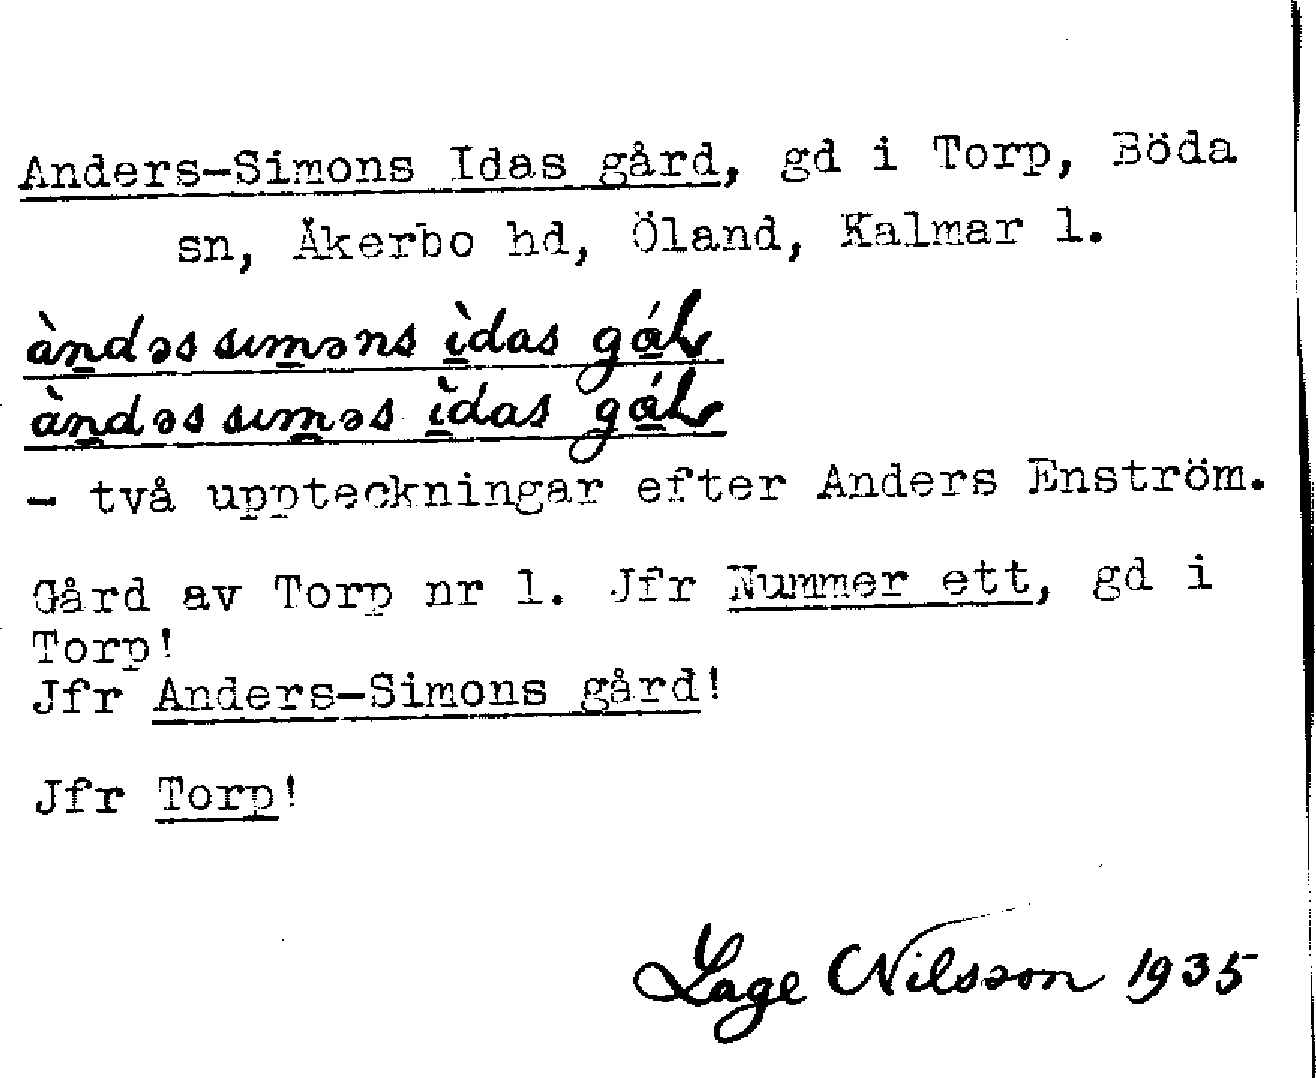 Anders-Simons Idas gård, gd i Torp, Böda
sn, Åkerbo hd, Öland, Kalmar l.
àndəs sıməns ìdas
àndəs sıməs ìdas
- två uppteckningar efter Anders Enström.
Gård av Torp nr 1. Jfr Nummer ett, gd i
Torp!
Jfr Anders-Simons gård!
Jfr Torp!
Lage Nilsson 1935